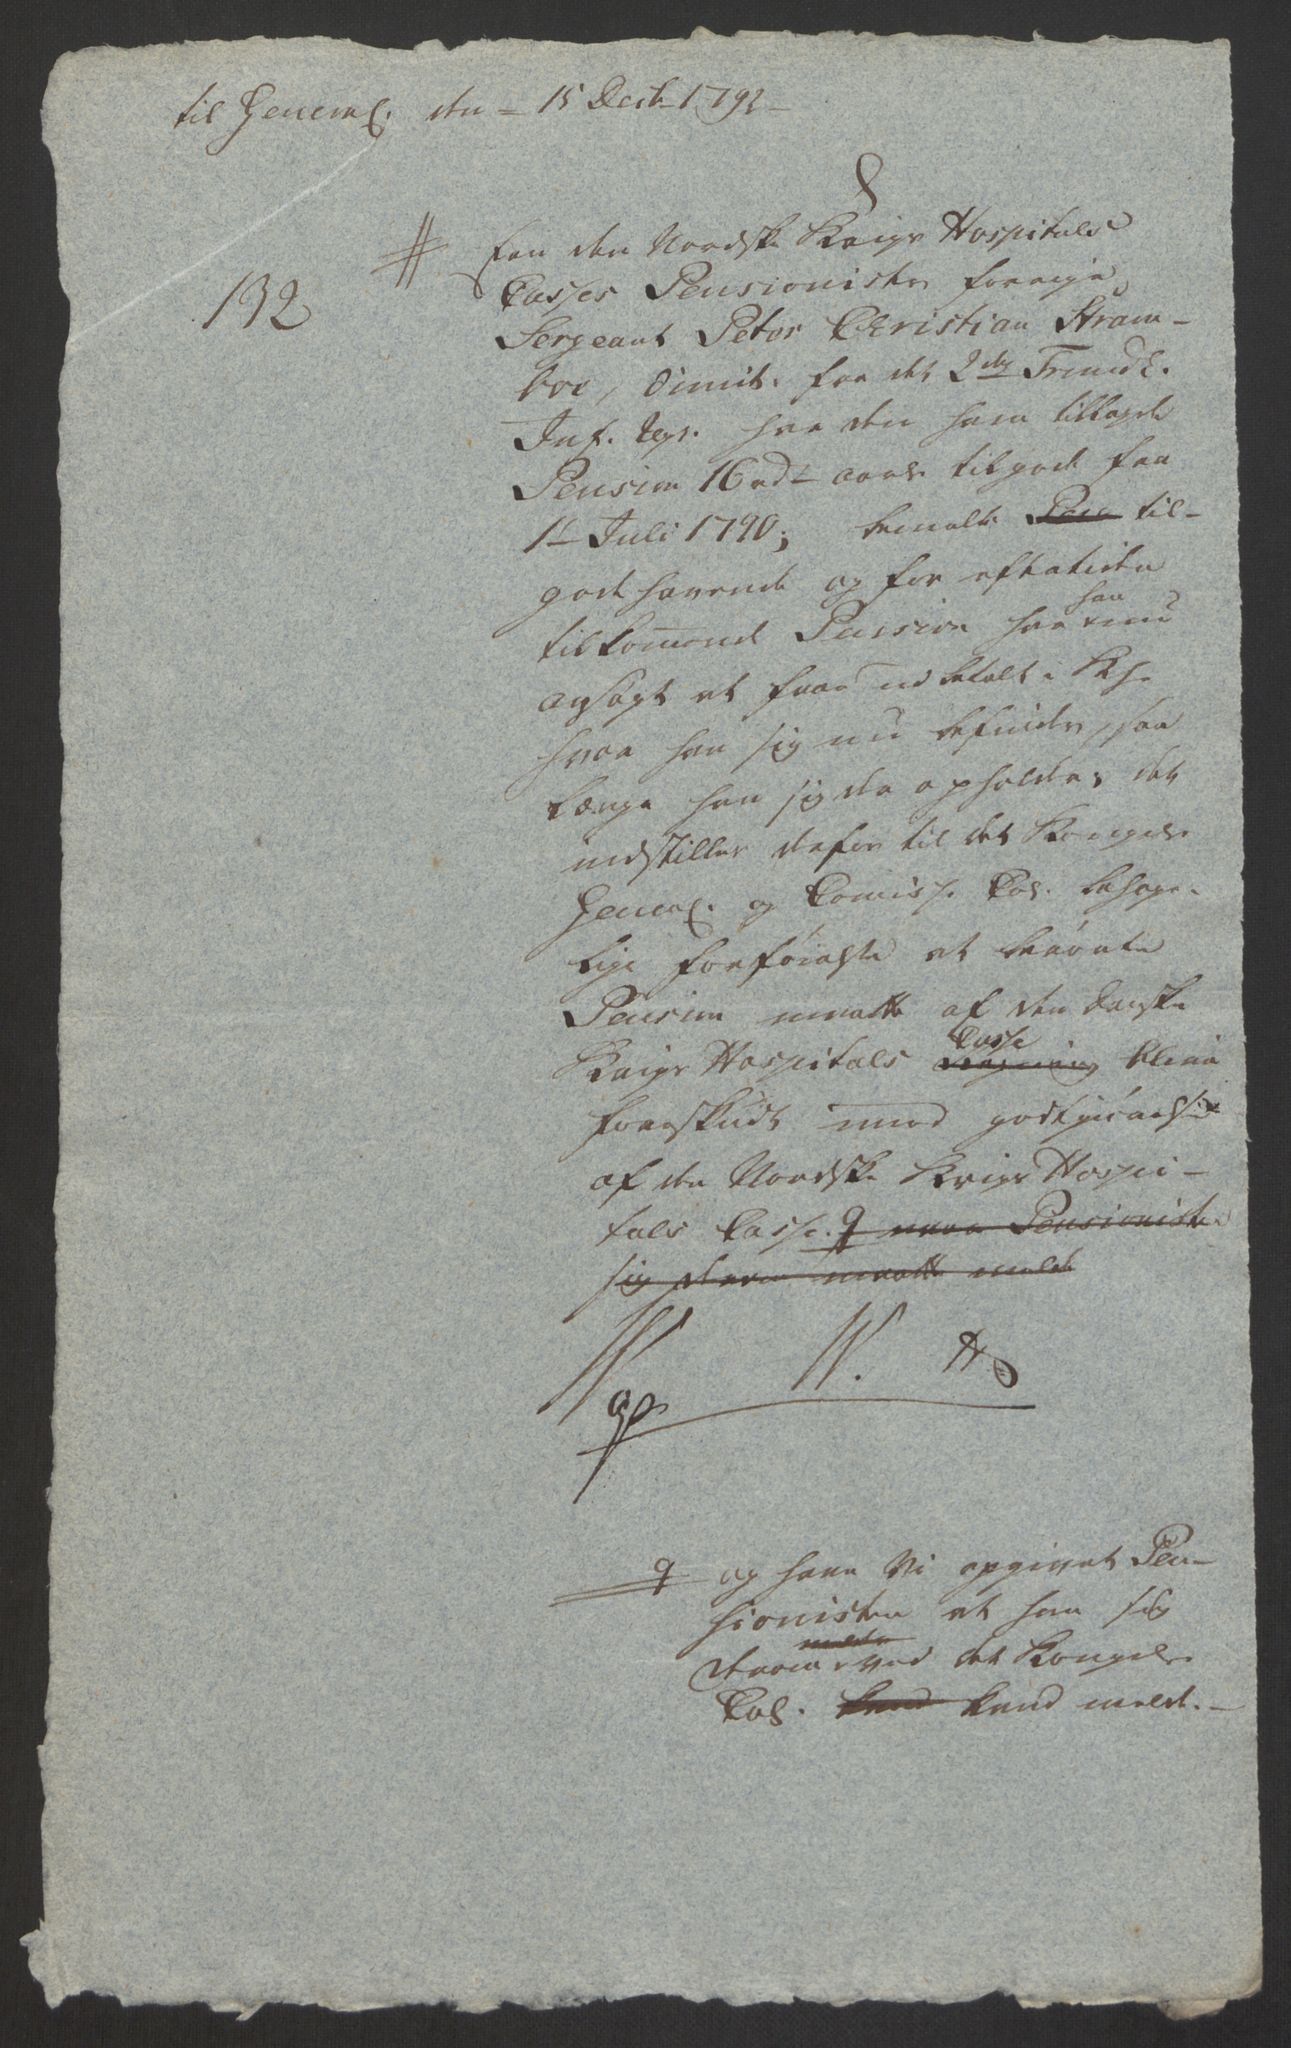 til General. den 15 Decbr 1792
132
Een den Nordske Krigs Hospitals
Casses Pensionister forrige
Sergeant Peter Christian Stram-
boe, dimit. fra det 2det Trundh.
Inf. Reg. har den ham tillagde
Pension 16 rd aarl. tilgode fra
1t Juli 1790; bemelte til-
godehavende og for eftertiden
tilkomende Pension har han nu
ansøgt at faae udbetalt i Kh.
hvor han sig nu befinder, saa
længe han sig der opholder; det
indstilles derfor til det Kongel.
General. og Comiss. Col. behage-
lige forføielse at berørte
Pension maatte af den danske
Krigs Hospitals Casse blive
forskudt mod godtgiørelse
af den Nordske Krigs Hospi-
tals Casse. q naar Pensionisten
sig derom maatte melde
W W.
q og have Vi opgivet Pen-
sionisten at han sig
derom ved det Kongel.
Col. kund melde.